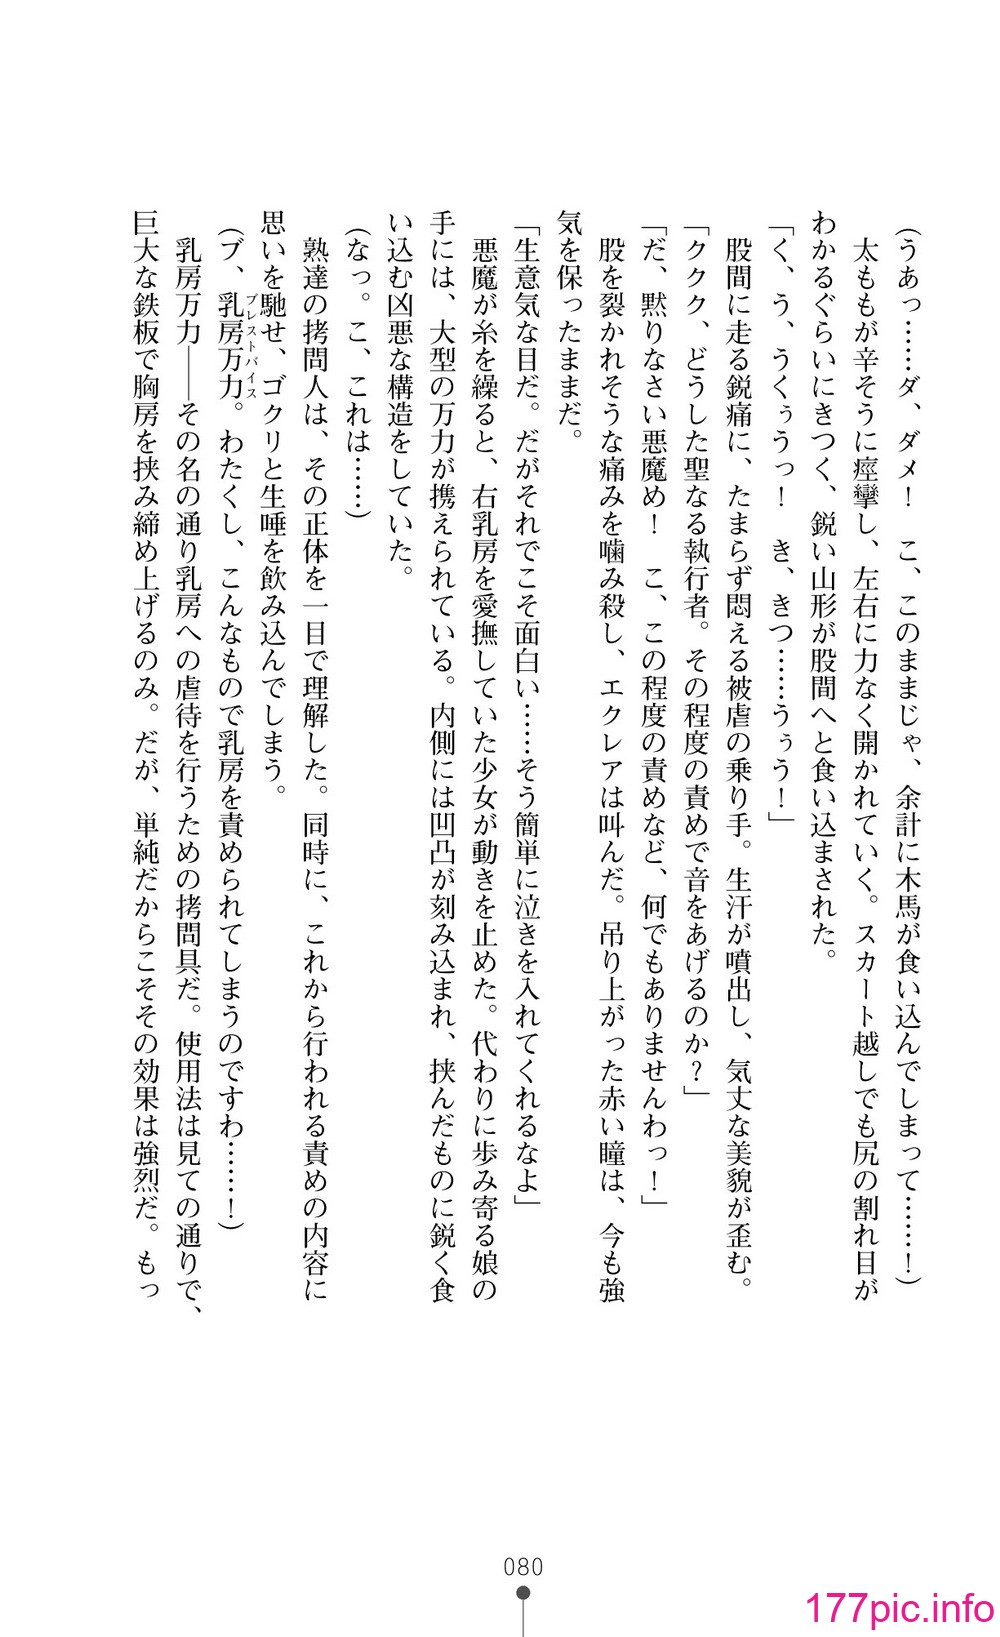 (うあっ……ダ、ダメ！　こ、このままじゃ、余計に木馬が食い込んでしまって……！)
太ももが辛そうに痙攣し、左右に力なく開かれていく。スカート越しでも尻の割れ目が
わかるぐらいにきつく、鋭い山形が股間へと食い込まされた。
「く、う、うくぅうっ！　き、きつ……うぅう！」
股間に走る鋭痛に、たまらず悶える被虐の乗り手。生汗が噴出し、気丈な美貌が歪む。
「ククク、どうした聖なる執行者。その程度の責めで音をあげるのか？」
「だ、黙りなさい悪魔め！　こ、この程度の責めなど、何でもありませんわっ！」
股を裂かれそうな痛みを噛み殺し、エクレアは叫んだ。吊り上がった赤い瞳は、今も強
気を保ったままだ。
「生意気な目だ。だがそれでこそ面白い……そう簡単に泣きを入れてくれるなよ」
悪魔が糸を繰ると、右乳房を愛撫していた少女が動きを止めた。代わりに歩み寄る娘の
手には、大型の万力が携えられている。内側には凹凸が刻み込まれ、挟んだものに鋭く食
い込む凶悪な構造をしていた。
(なっ。こ、これは……)
熟達の拷問人は、その正体を一目で理解した。同時に、これから行われる責めの内容に
思いを馳せ、ゴクリと生唾を飲み込んでしまう。
(ブ、乳房万力。わたくし、こんなもので乳房を責められてしまうのですわ……！)
ブレストバイス
乳房万力――その名の通り乳房への虐待を行うための拷問具だ。使用法は見ての通りで、
巨大な鉄板で胸房を挟み締め上げるのみ。だが、単純だからこそその効果は強烈だ。もっ
080
177pic.info